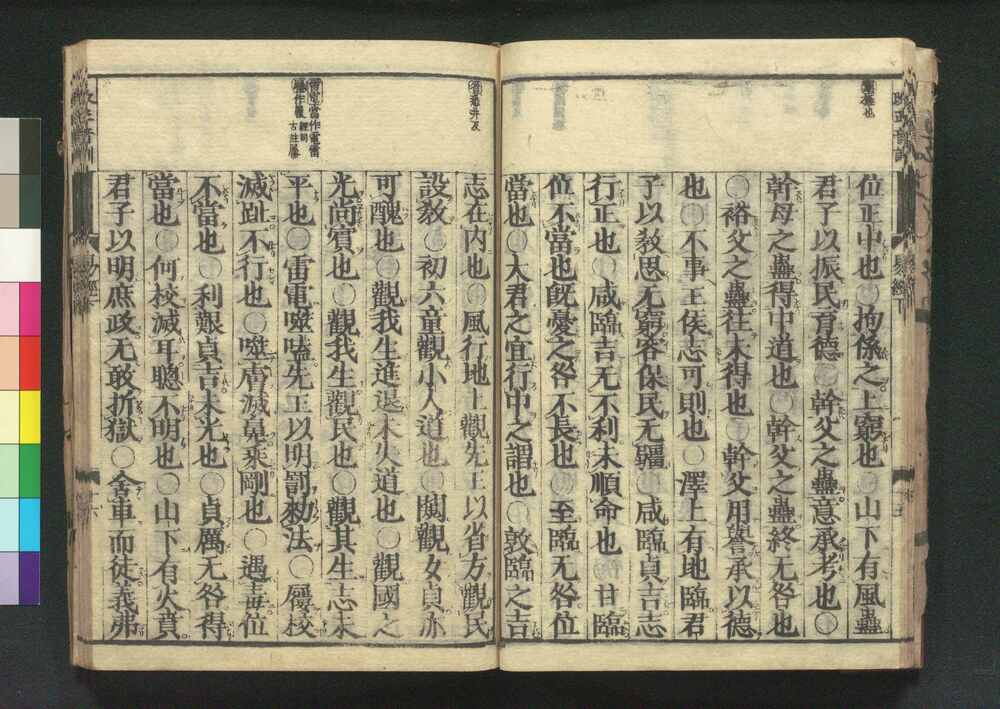 位正中也○拘係之上窮也○山下有風蠱
君子以振民育德○幹父之蠱意承考也○
幹母之蠱得中道也○幹父之蠱終无咎也
○裕父之蠱往未得也○幹父用譽承以德
也○不事王侯志可則也○澤上有地臨君
子以教思无窮容保民无疆○咸臨貞吉志
行正也○咸臨吉无不利未順命也○甘臨
位不當也旣憂之咎不長也○至臨无咎位
當也○大君之宜行中之謂也○敦臨之吉
志在内也○風行地上觀先王以省方觀民
設教○初六童觀小人道也○闚觀女貞亦
可醜也○觀我生進退未失道也○觀國之
光尚賓也○觀我生觀民也○觀其生志未
平也○雷電噬嗑先王以明罰勑法○屨校
滅趾不行也○噬膚滅鼻乘剛也○遇毒位
不當也○利艱貞吉未光也○貞厲无咎得
當也○何校滅耳聰不明也○山下有火賁
君子以明庶政无敢折獄○舍車而徒義弗
雷電當作電雷
易經下
易經下